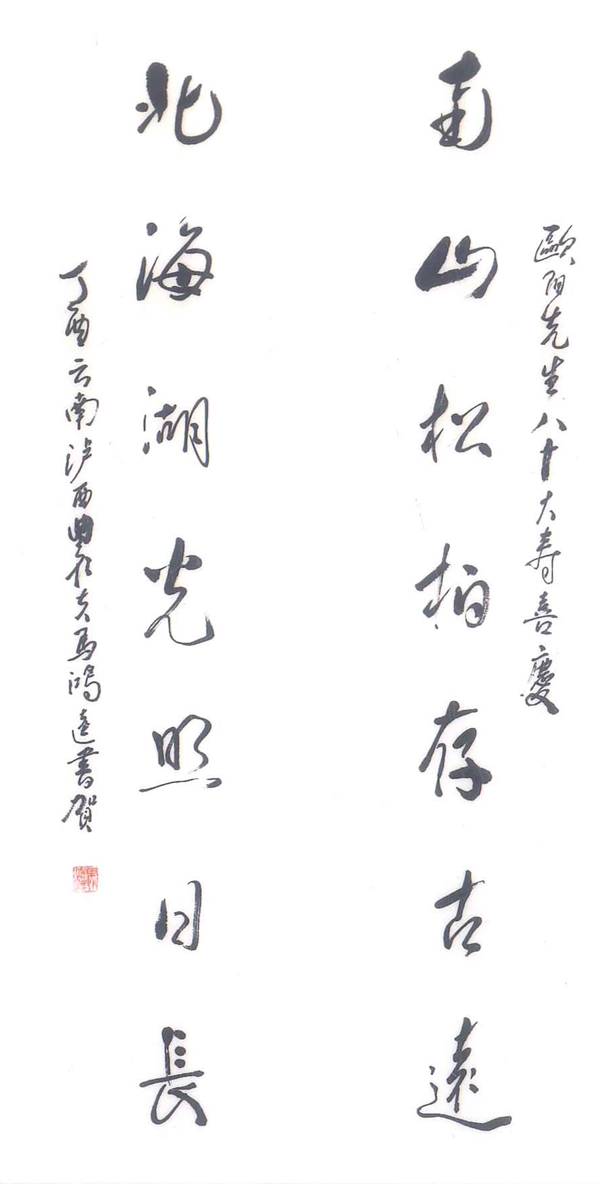 歐阳先生八十大寿喜慶
南山松柏存古遠
北海湖光照日長
丁酉云南泸西農夫馬鴻遠書贺